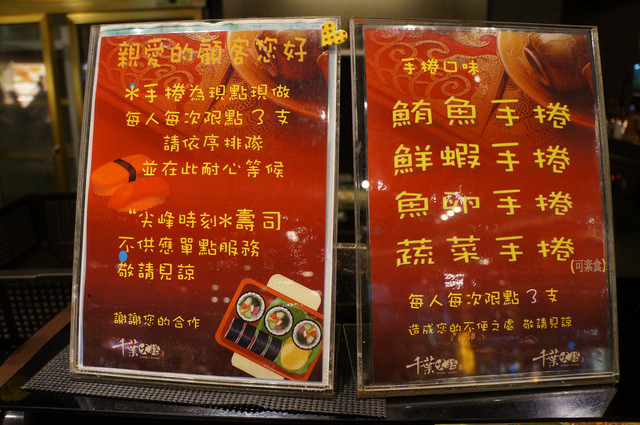 親愛的顧客您好
*手捲為現點現做
每人每次限點3支
請依序排隊
並在此耐心等候
"尖峰時刻*壽司
不供應單點服務
敬請見諒
謝謝您的合作
千葉火鍋
手捲口味
鮪魚手捲
鮮蝦手捲
魚卵手捲
蔬菜手捲(可素食)
每人每次限點3支
造成您的不便之處 敬請見諒
千葉火鍋 千葉火鍋